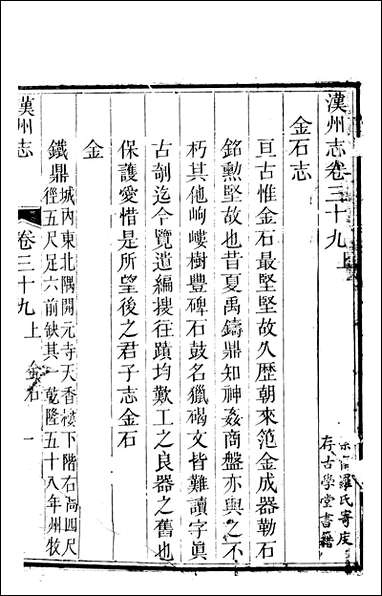 漢州志卷三十九上
羅氏寄度
存古學堂書籍
金石志
亘古惟金石最堅堅故久歷朝來范金成器勒石
銘勲堅故也昔夏禹鑄鼎知神姦商盤亦與之不
朽其他岣嶁樹豐碑石鼓名獵碣文皆難讀字眞
古刱迄今覽遺編搜往蹟均歎工之良器之舊也
保護愛惜是所望後之君子志金石
金
鐵鼎城內東北隅開元寺天香樓下階右高四尺
徑五尺足六前缺其一乾隆五十八年州牧
漢州志
卷三十九上 金石 一